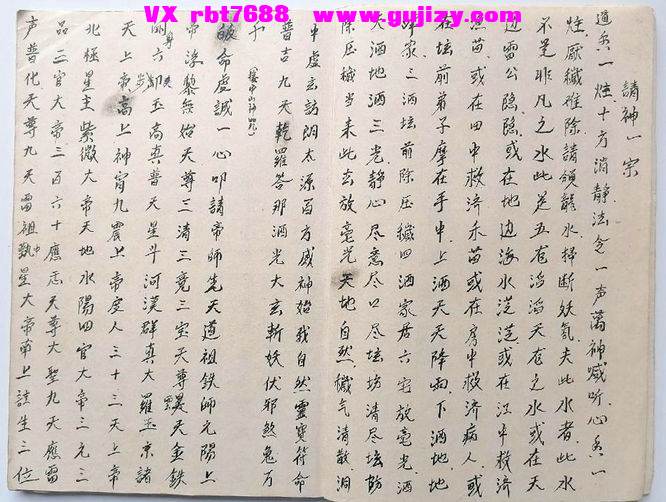 VX rbt7688 www.gujizy.com
請神一宗
道香一炷十方消静法令一声萬神咸听心香一
炷厭穢雅除請領龍水掃断妖氛夫此水者此水
不是非凡之水此是五右滔滔天右之水或在天
边雷公隐隐或在地边海水茫茫或在江中救济
魚苗或在田中救济禾苗或在房中救济病人或
在坛前弟子摩在手中上洒天天降雨下洒地地
除家三洒坛前除压穢四洒家居六宅放毫光洒
天洒地洒三光静心尽意尽口尽坛坊清尽坛前
除压穢当来此去放毫光天地自然穢气清散洞
中虚玄訪朗太源百方威神始我自然靈寶符命
普告九天乾羅答那洒光大玄斬妖伏邪煞鬼万
千
皈命虚誠一心叩請帝師先天道祖鉄師元陽上
帝浮黎無始天尊三清三竟三宝天尊昊天金鉄
玉高真普天星斗河漢群真大羅玉京諸
天上帝高上神宵九震上帝度人三十三天上帝
北極星主紫微大帝天地水陽四官大帝三元三
品三官大帝三百六十應忎天尊大聖九天應雷
声普化天尊九天雷祖執星大帝南上註生三位